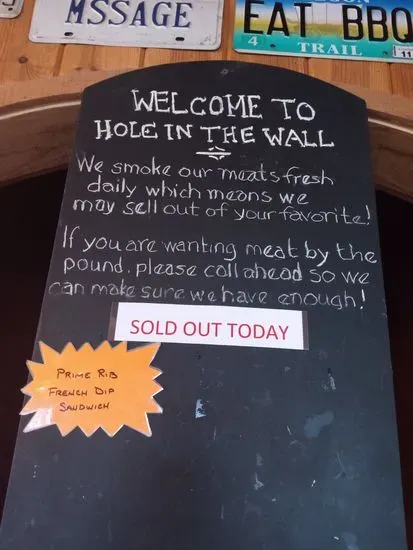 MSSAGE
EAT BBQ
4 TRAIL 11
WELCOME TO
HOLE IN THE WALL
We smoke our meats fresh
daily which means we
may sell out of your favorite!
If you are wanting meat by the
pound, please call ahead so we
can make sure we have enough!
SOLD OUT TODAY
PRIME RIB
FRENCH DIP
SANDWICH